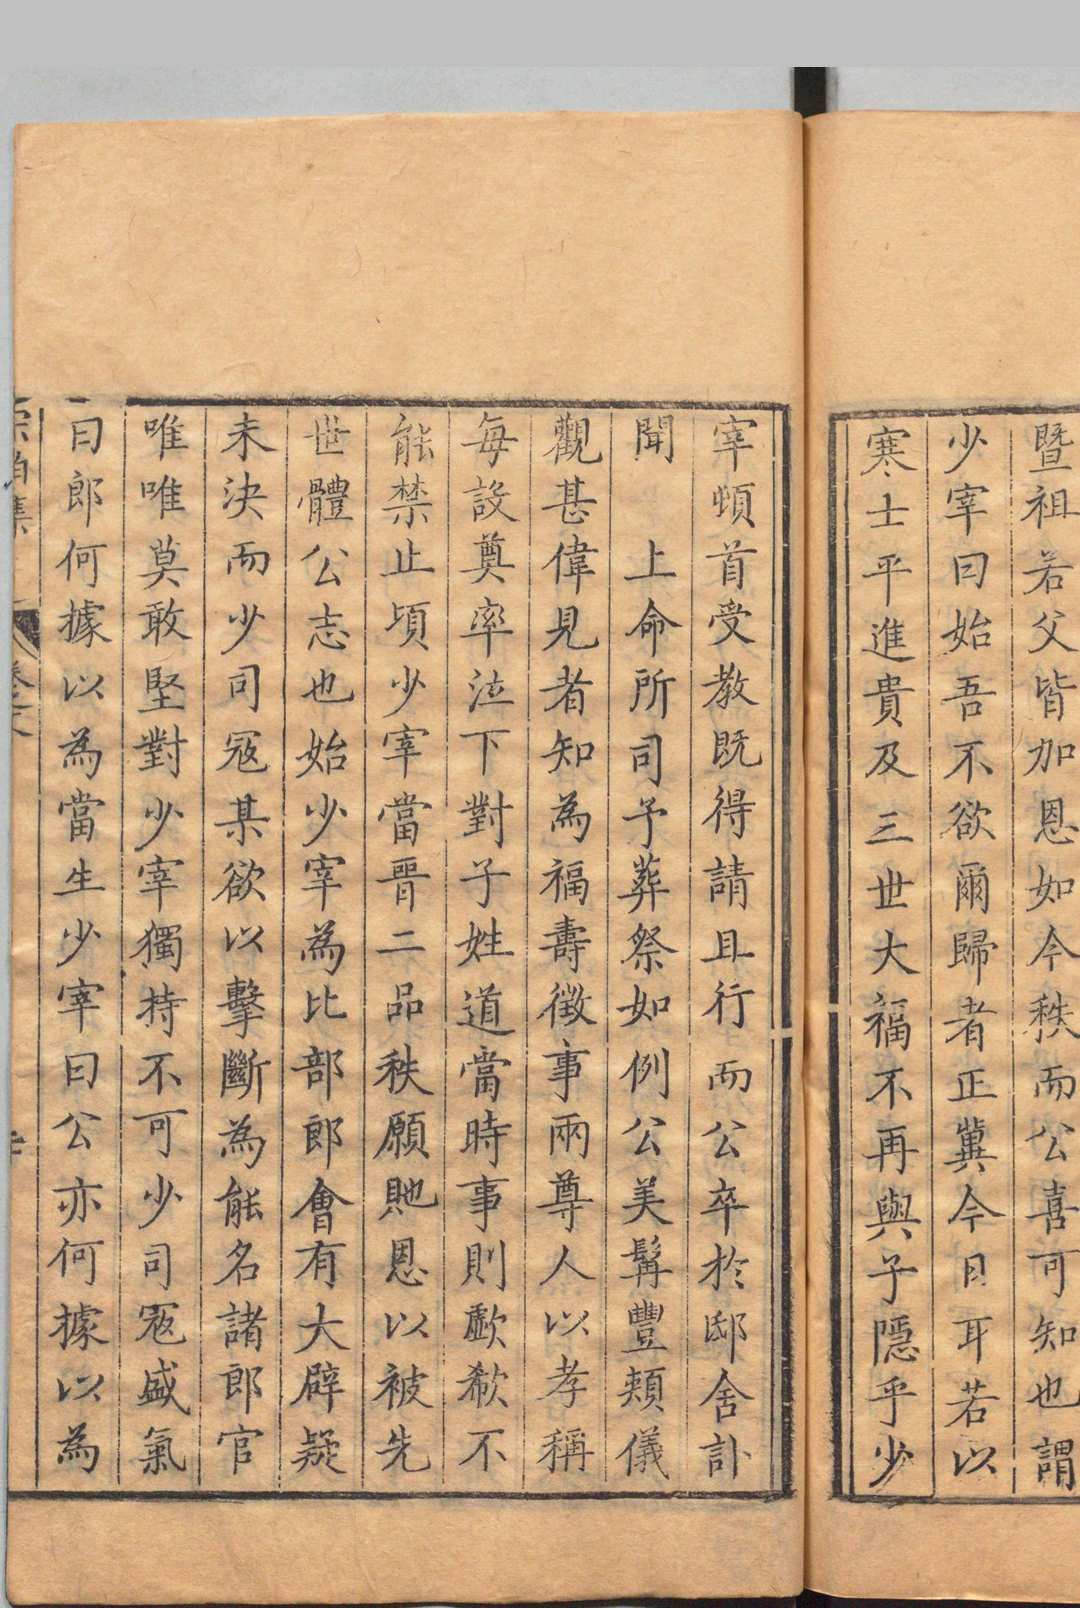 暨祖若父皆加恩如今秩而公喜可知也謂
少宰曰始吾不欲爾歸者正冀今日耳若以
寒士平進貴及三世大福不再與子隱乎少
宰頓首受教既得請且行而公卒於邸舍訃
聞　上命所司予葬祭如例公美髯豐頰儀
觀甚偉見者知為福壽徵事兩尊人以孝稱
每設奠率泣下對子姓道當時事則歔欷不
能禁止頃少宰當晉二品秩願貤恩以被先
世體公志也始少宰為比部郎會有大辟疑
未決而少司冦某欲以擊斷為能名諸郎官
唯唯莫敢堅對少宰獨持不可少司冦盛氣
曰郎何據以為當生少宰曰公亦何據以為